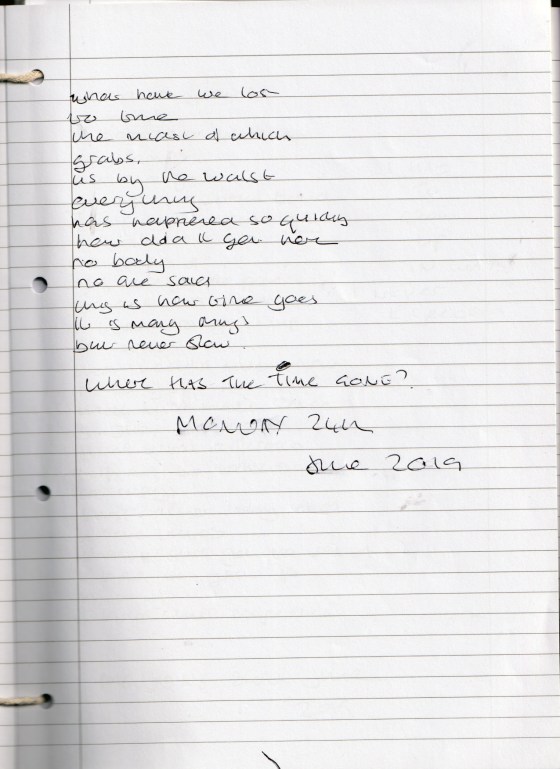 what have we lost
to time
the beast of which
grabs.
us by the waist
everything
has happened so quickly
how did it get here
no body
no one said
this is how time goes
it is many things
but never slow.
WHERE HAS THE TIME GONE?
MONDAY 24th
June 2019